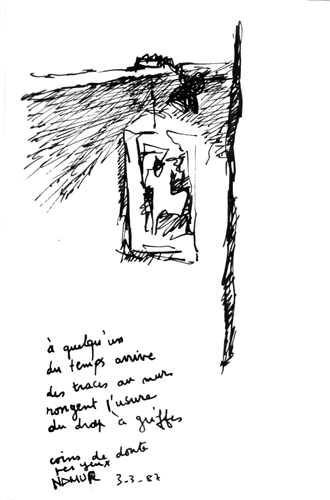 à quelqu'un
du temps arrive
des traces au mur
rongent l'usure
du drap à griffes
coins de doute
tes yeux
NAMUR 3-3-87